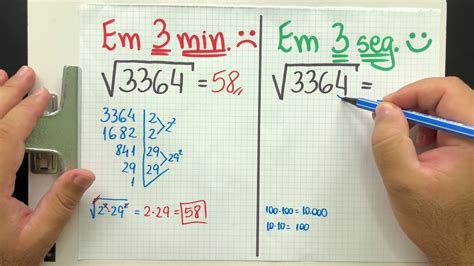 Em 3 min. ☹
√3364 = 58
3364 | 2
1682 | 2 > 2²
841 | 29
29 | 29 > 29²
1
√2²·29² = 2·29 = 58
Em 3 seg. ☺
√3364 =
100·100 = 10.000
10·10 = 100